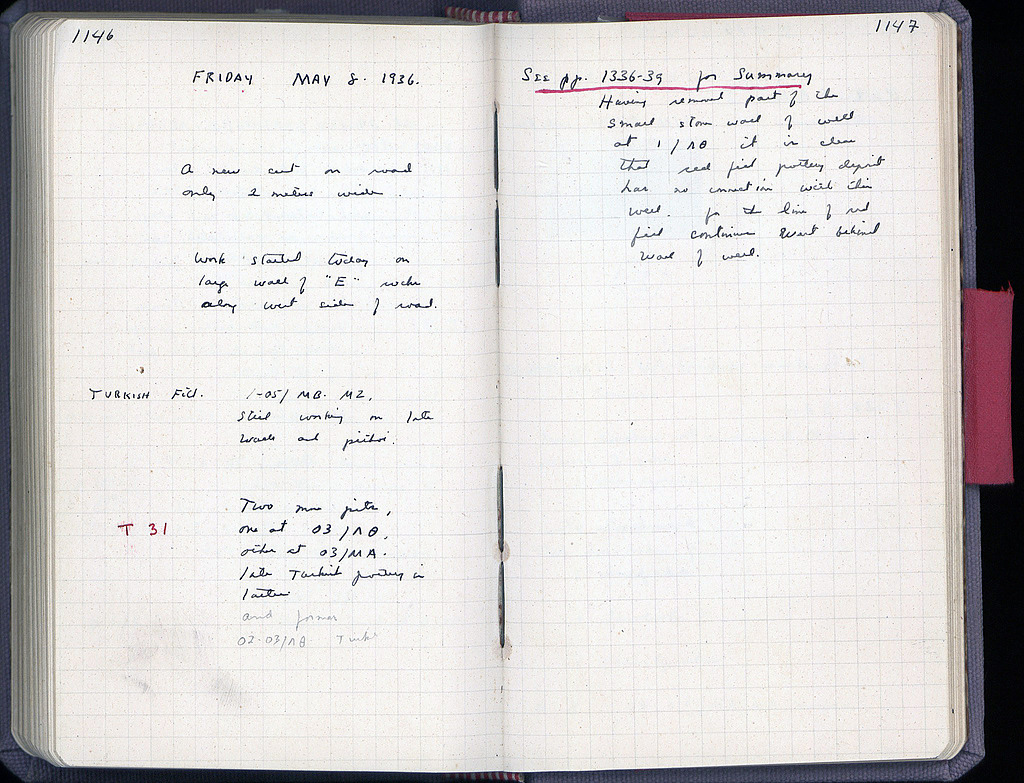 1146
FRIDAY MAY 8. 1936.
A new cut on road
only 2 metres wide.
Work started today on
large wall of "E" rocks
along west side of road.
TURKISH Fill. /-05/ MB. MZ,
Still working on late
walls and pithoi.
Two more pits,
T 31 one at 03/ΛΘ,
other at 03/MA.
late Turkish pottery in
latter
and former
02-03/ΛΘ Turk
1147
SEE pp. 1336-39 for Summary
Having removed part of the
small stone wall of well
at 1/ΛΘ it is clear
that red fill pottery deposit
has no connection with this
well. for the line of red
fill continues West behind
wall of well.